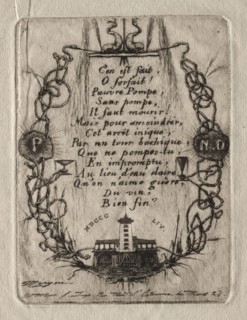 C'en est fait,
O forfait!
Pauvre Pompe,
Sans pompe,
Il faut mourir.
Mais pour amoindrir,
Cet arrêt inique,
Par un tour bachique,
Que ne pompes-tu,
En impromptu,
Au lieu d'eau claire,
Qu'on n'aime guère,
Du vin?
Bien fin?
P
N.D
MDCCC